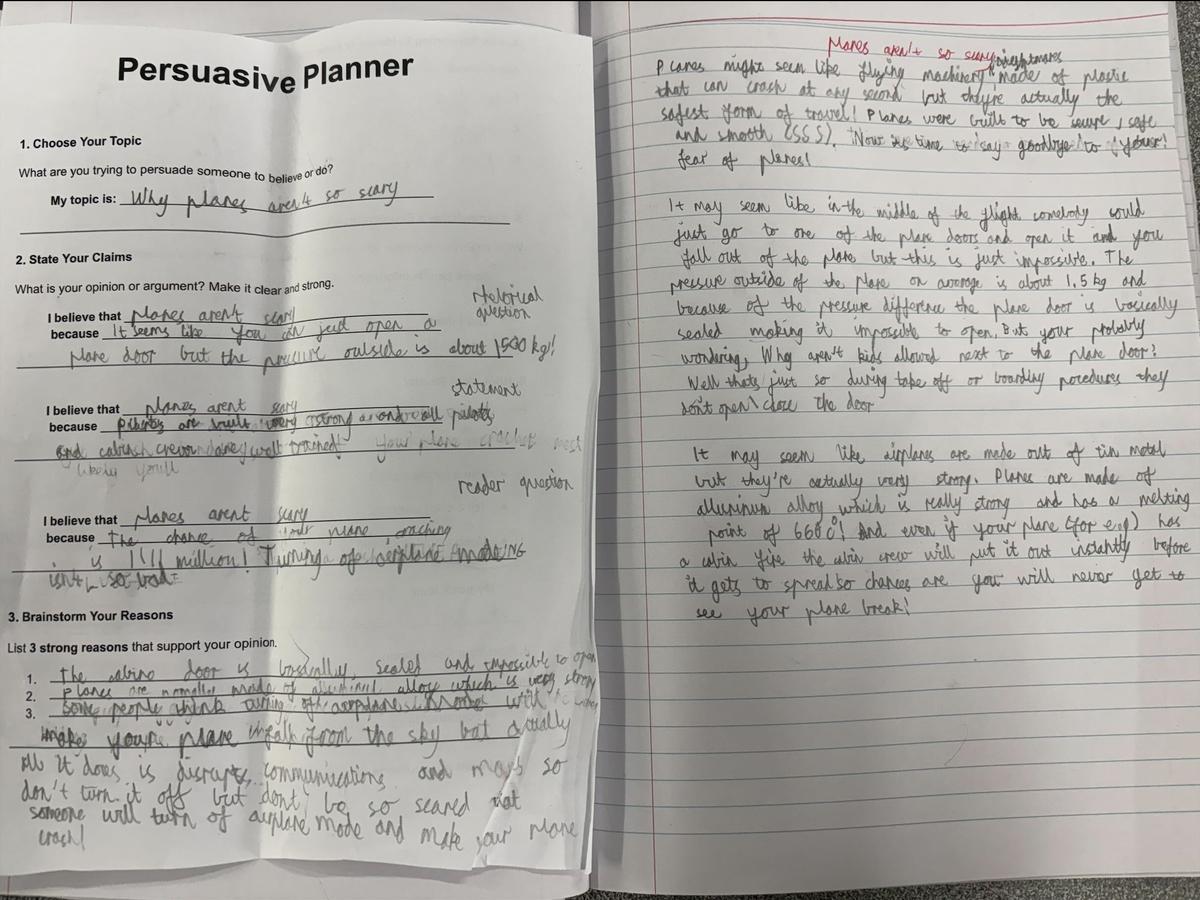 Persuasive Planner
1. Choose Your Topic
What are you trying to persuade someone to believe or do?
My topic is: Why planes aren't so scary
2. State Your Claims
What is your opinion or argument? Make it clear and strong.
rhetorical
question
I believe that planes aren't scary
because It seems like you can just open a
plane door but the pressure outside is about 1500 kg!!
statement
I believe that planes arent scary
because are built very strong and all pilots
and cabin crew are well trained! your plane crashes most
likely you'll
reader question
I believe that planes arent scary
because The chance of your plane craching
is 1 in 11 million! Turning of airplane mode
isnt so bad
3. Brainstorm Your Reasons
List 3 strong reasons that support your opinion.
1. The cabine door is basically sealed and impossible to open
2. Planes are normally made of aluminul alloy which is very strong
3. Some people think turning off airplane mode will
make your plane fall from the sky but actually
All it does is disrupts communications and maps so
don't turn it off but dont be so scared that
someone will turn of airplane mode and make your plane
crash!
Planes aren't so scary
nightmares
Planes might seem like flying machinery made of plastic
that can crash at any second but they're actually the
safest form of travel! Planes were built to be secure, safe
and smooth (SSS). Now its time to say goodbye to your
fear of planes!
It may seem like in the middle of the flight somebody could
just go to one of the plane doors and open it and you
fall out of the plane but this is just impossible. The
pressure outside of the plane on average is about 1.5 kg and
because of the pressure difference the plane door is basically
sealed making it impossible to open. But your probably
wondering, Why aren't kids allowed next to the plane door?
Well thats just so during take off or boarding procedures they
don't open/close the door
It may seem like airplanes are made out of tin metal
but they're actually very strong. Planes are made of
alluminum alloy which is really strong and has a melting
point of 660c°! And even if your plane (for e.g) has
a cabin fire the cabin crew will put it out instantly before
it gets to spread so chances are you will never get to
see your plane break!